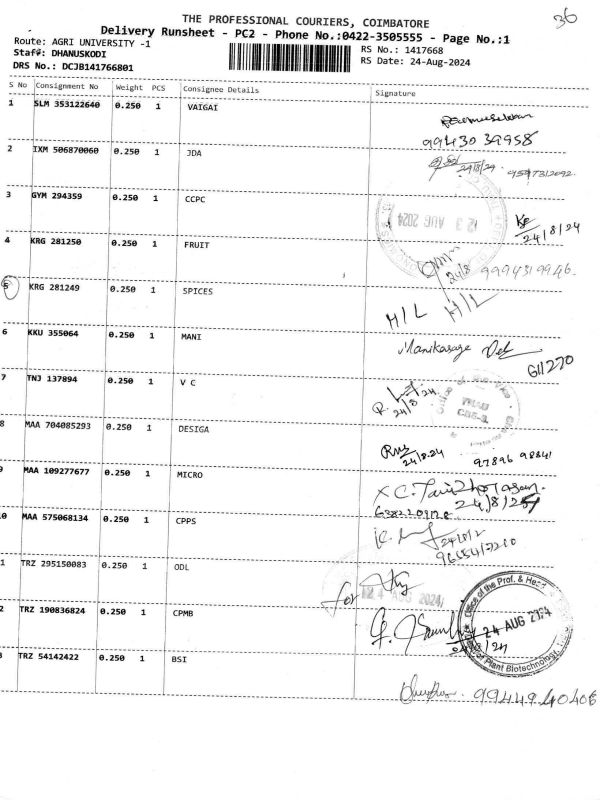 36
THE PROFESSIONAL COURIERS, COIMBATORE
Delivery Runsheet - PC2 - Phone No.:0422-3505555 - Page No.:1
Route: AGRI UNIVERSITY -1
RS No.: 1417668
Staff: DHANUSKODI
RS Date: 24-Aug-2024
DRS No.: DCJB141766801
S No Consignment No Weight PCS Consignee Details Signature
1 SLM 353122640 0.250 1 VAIGAI
99430 39958
2 IXM 506870060 0.250 1 JDA
24/8/24
3 GYM 294359 0.250 1 CCPC
23 AUG 2024
24/8/24
4 KRG 281250 0.250 1 FRUIT
24/8 9994319946.
5 KRG 281249 0.250 1 SPICES
H/L H/L
6 KKU 355064 0.250 1 MANI
7 TNJ 137894 0.250 1 V C
24/8 24
TNAU
CBE-3.
8 MAA 704085293 0.250 1 DESIGA
24/8.24 97896 98841
9 MAA 109277677 0.250 1 MICRO
24/8/24
0 MAA 575068134 0.250 1 CPPS
1 TRZ 295150083 0.250 1 ODL
for
24 AUG 2024
2 TRZ 190836824 0.250 1 CPMB
Office of the Prof. & Head
24 AUG 2024
of Plant Biotechnology
24/8/24
3 TRZ 54142422 0.250 1 BSI
9944940406